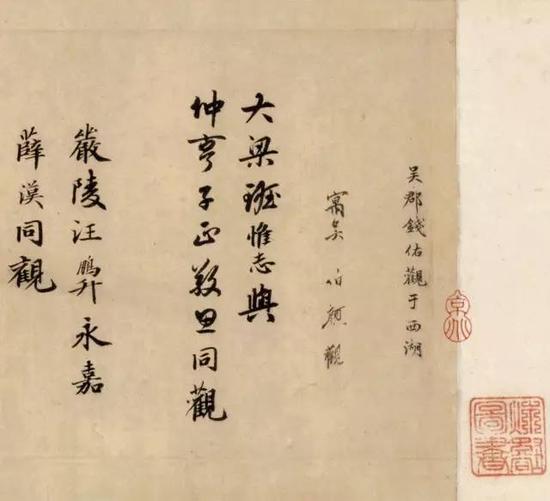 吳郡錢佑觀于西湖
伯顏觀
大梁班惟志與
仲亨子正敬思同觀
嚴陵汪鵬升永嘉
薛漢同觀
京兆
圖書